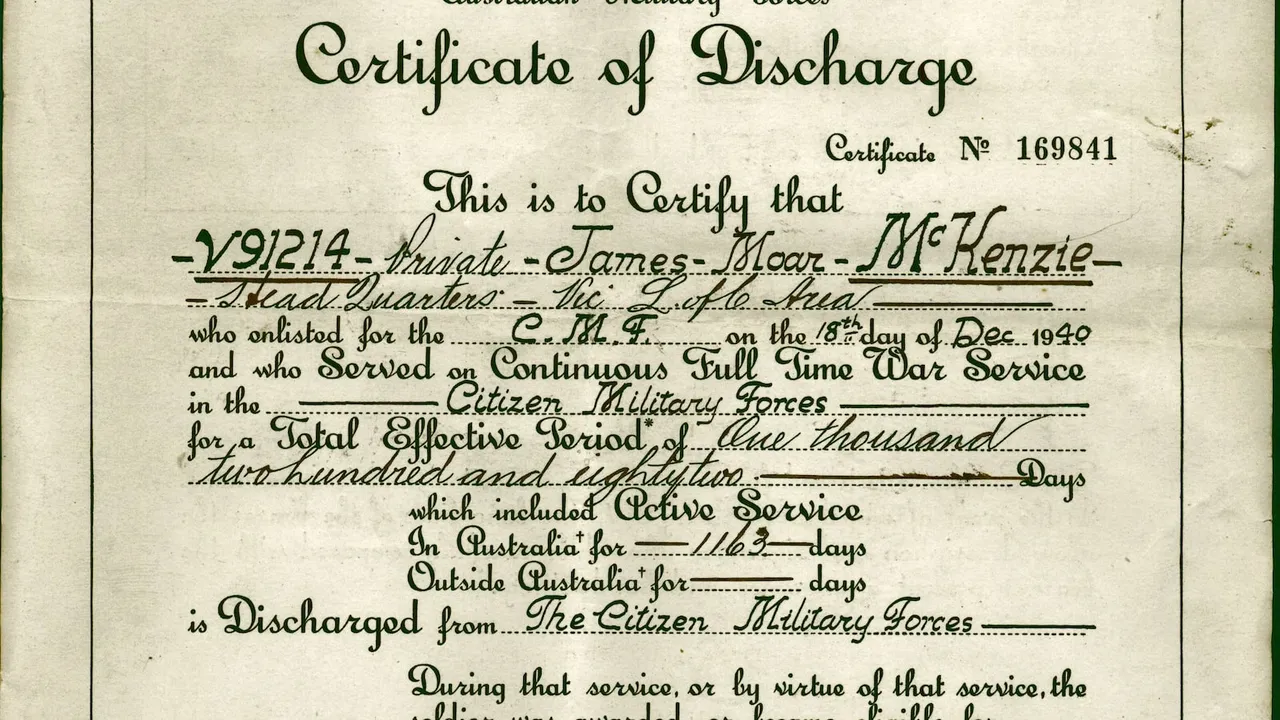 Australian Military Forces
Certificate of Discharge
Certificate Nº 169841
This is to Certify that
-V91214- Private -James- Moar - McKenzie-
- Head Quarters - Vic L of C Area
who enlisted for the C.M.F. on the 18th day of Dec 1940
and who Served on Continuous Full Time War Service
in the Citizen Military Forces
for a Total Effective Period* of One thousand
two hundred and eighty two Days
which included Active Service
In Australia† for 1163 days
Outside Australia† for days
is Discharged from The Citizen Military Forces
During that service, or by virtue of that service, the
soldier was awarded, or became eligible for